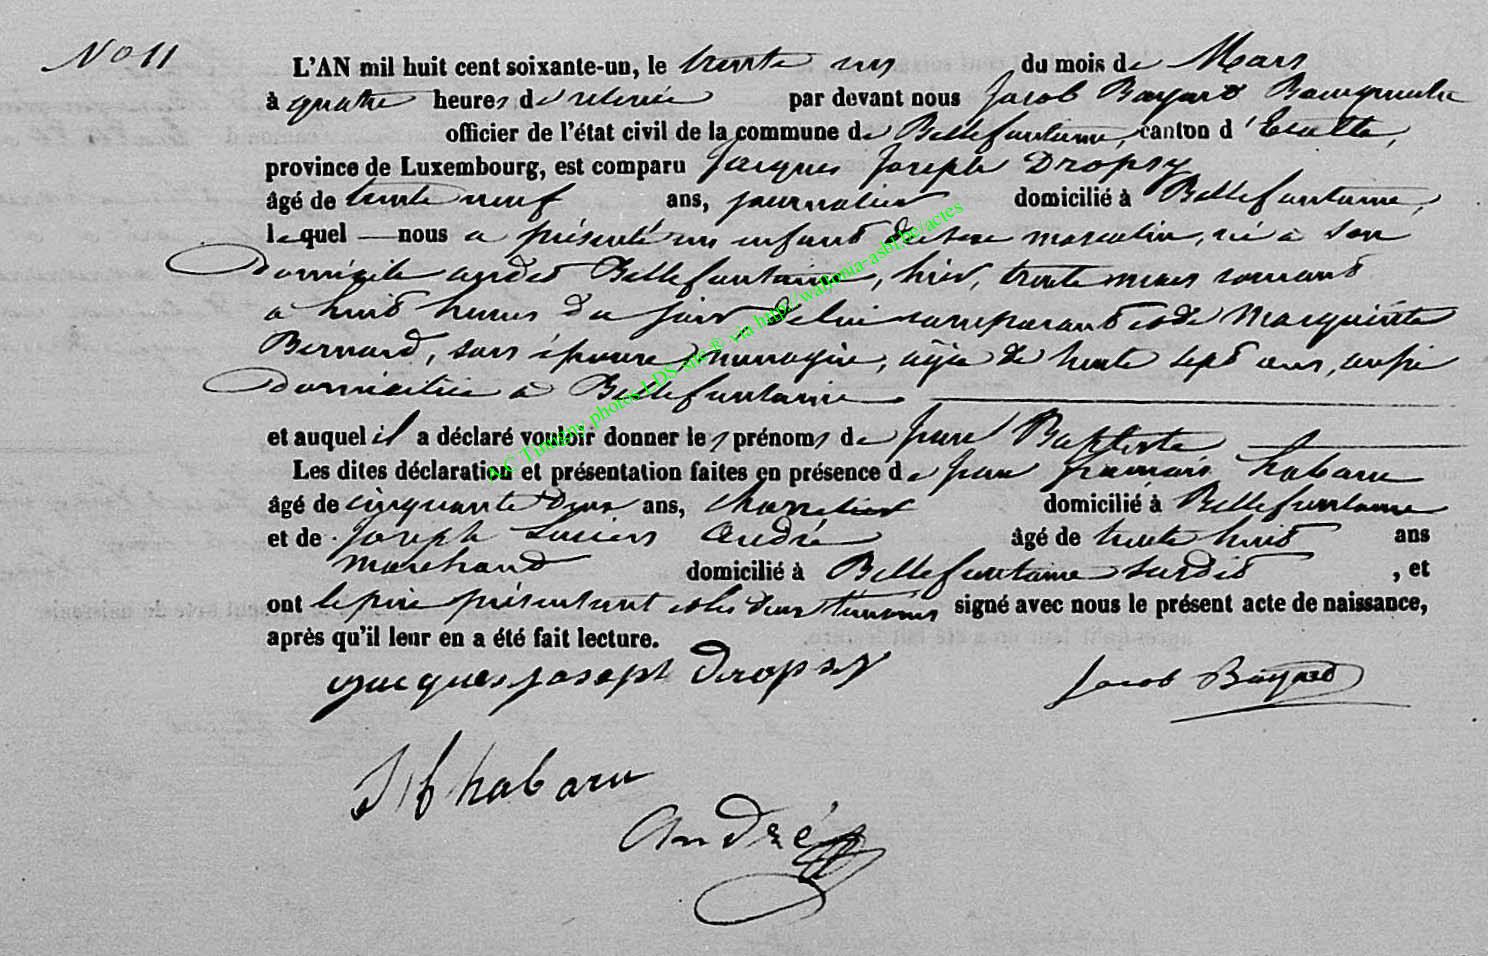 No 11
L'AN mil huit cent soixante-un, le trente un du mois de Mars
à quatre heures de relevée par devant nous Jacob Bayard Bourgmestre
officier de l'état civil de la commune de Bellefontaine, canton d'Etalle,
province de Luxembourg, est comparu Jacques Joseph Dropsy
âgé de trente neuf ans, journalier domicilié à Bellefontaine,
lequel nous a présenté un enfant du sexe masculin, né à son
domicile audit Bellefontaine, hier, trente mars courant
a huit heures du soir, de lui comparant et de Marguerite
Bernard, son épouse, menagère, agée de trente sept ans, aussi
domiciliée à Bellefontaine.
et auquel il a déclaré vouloir donner les prénoms de Jean Baptiste
Les dites déclaration et présentation faites en présence de Jean François habaru
âgé de cinquante deux ans, domicilié à Bellefontaine
et de Joseph Lucien André âgé de trente huit ans
marchand domicilié à Bellefontaine surdit, et
ont le père présentant et les deux témoins signé avec nous le présent acte de naissance,
après qu'il leur en a été fait lecture.
jacques joseph Dropsy Jacob Bayard
J f habaru
André
A.C Tintigny photos LDS-mfc® via http://wallonia-asbl.be/actes